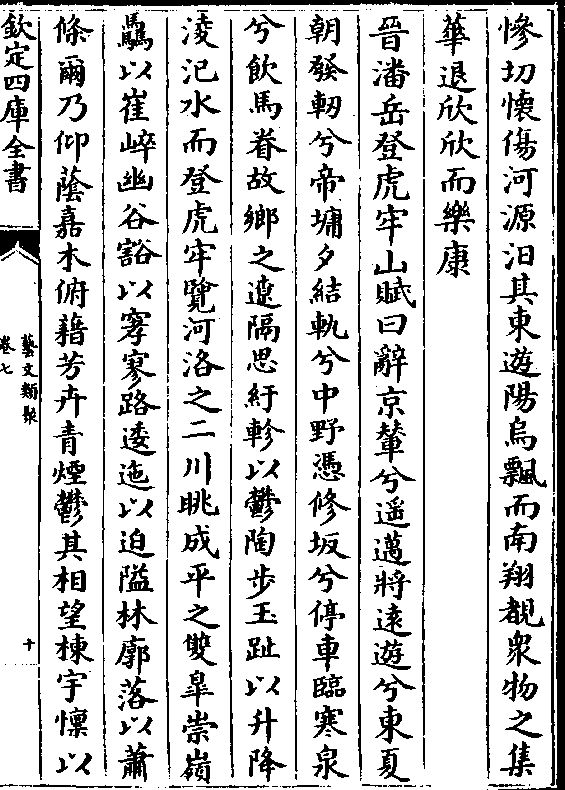 慘切懷傷河源汩其東遊陽烏飄而南翔覩衆物之集
華退欣欣而樂康
晉潘岳登虎牢山賦曰辭京輦兮遥邁將逺遊兮東夏
朝發軔兮帝墉夕結軌兮中野憑修坂兮停車臨寒泉
兮飲馬眷故鄉之遼隔思紆軫以鬱陶步玉趾以升降
淩汜水而登虎牢覽河洛之二川眺成平之雙臯崇嶺
驫以崔崪幽谷豁以窙寥路逶迤以迫隘林廓落以蕭
條爾乃仰蔭嘉木俯藉芳卉青煙鬱其相望棟宇懍以
欽定四庫全書
藝文類聚
卷七
十